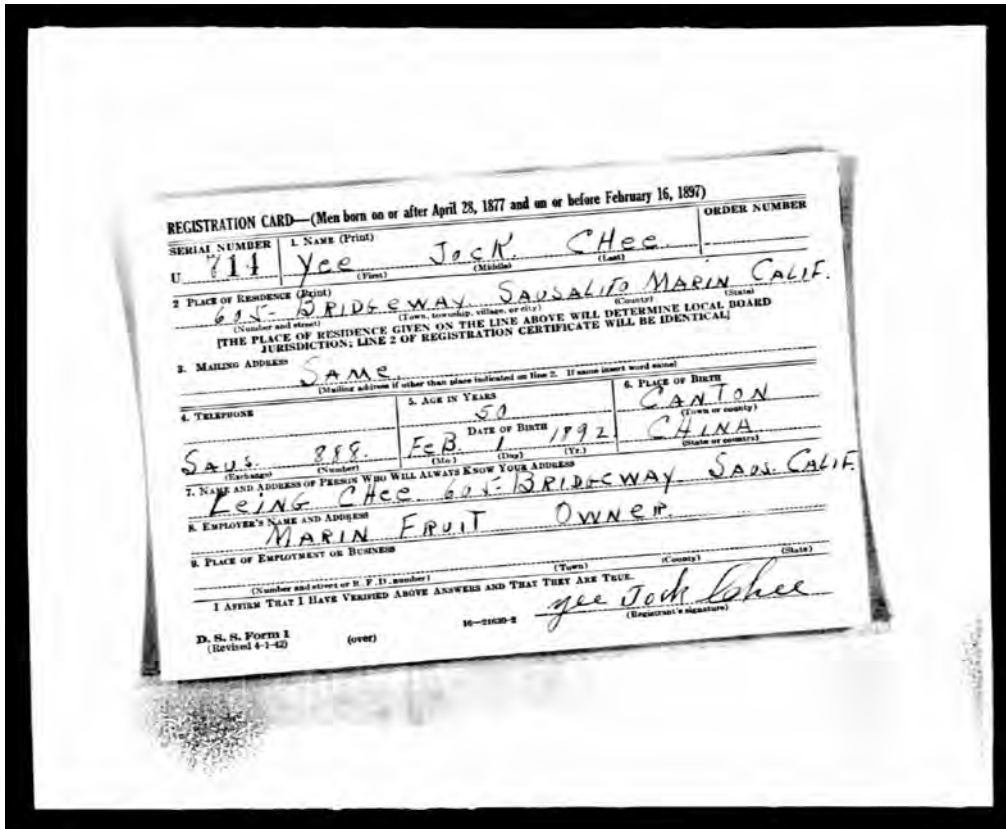 REGISTRATION CARD—(Men born on or after April 28, 1877 and on or before February 16, 1897)
SERIAL NUMBER 1. NAME (Print) ORDER NUMBER
U 714 Yee Jock CHee
(First) (Middle) (Last)
2 PLACE OF RESIDENCE (Print)
605- BRIDGEWAY SAUSALITO MARIN CALIF.
(Number and street) (Town, township, village, or city) (County) (State)
[THE PLACE OF RESIDENCE GIVEN ON THE LINE ABOVE WILL DETERMINE LOCAL BOARD
JURISDICTION; LINE 2 OF REGISTRATION CERTIFICATE WILL BE IDENTICAL]
3. MAILING ADDRESS
SAMe
(Mailing address if other than place indicated on line 2. If same insert word same)
4. TELEPHONE 5. AGE IN YEARS 6. PLACE OF BIRTH
50 CANTON
DATE OF BIRTH (Town or county)
SAUS. 888. FeB. 1 1892 CHINA
(Exchange) (Number) (Mo.) (Day) (Yr.) (State or country)
7. NAME AND ADDRESS OF PERSON WHO WILL ALWAYS KNOW YOUR ADDRESS
LeiNG CHee 605- BRIDGEWAY SAUS. CALIF.
8. EMPLOYER'S NAME AND ADDRESS
MARIN FRUIT OWNeR.
9. PLACE OF EMPLOYMENT OR BUSINESS
(Number and street or R. F. D. number) (Town) (County) (State)
I AFFIRM THAT I HAVE VERIFIED ABOVE ANSWERS AND THAT THEY ARE TRUE.
yee Jock Chee
D. S. S. Form 1 16—21630-2 (Registrant's signature)
(Revised 4-1-42) (over)